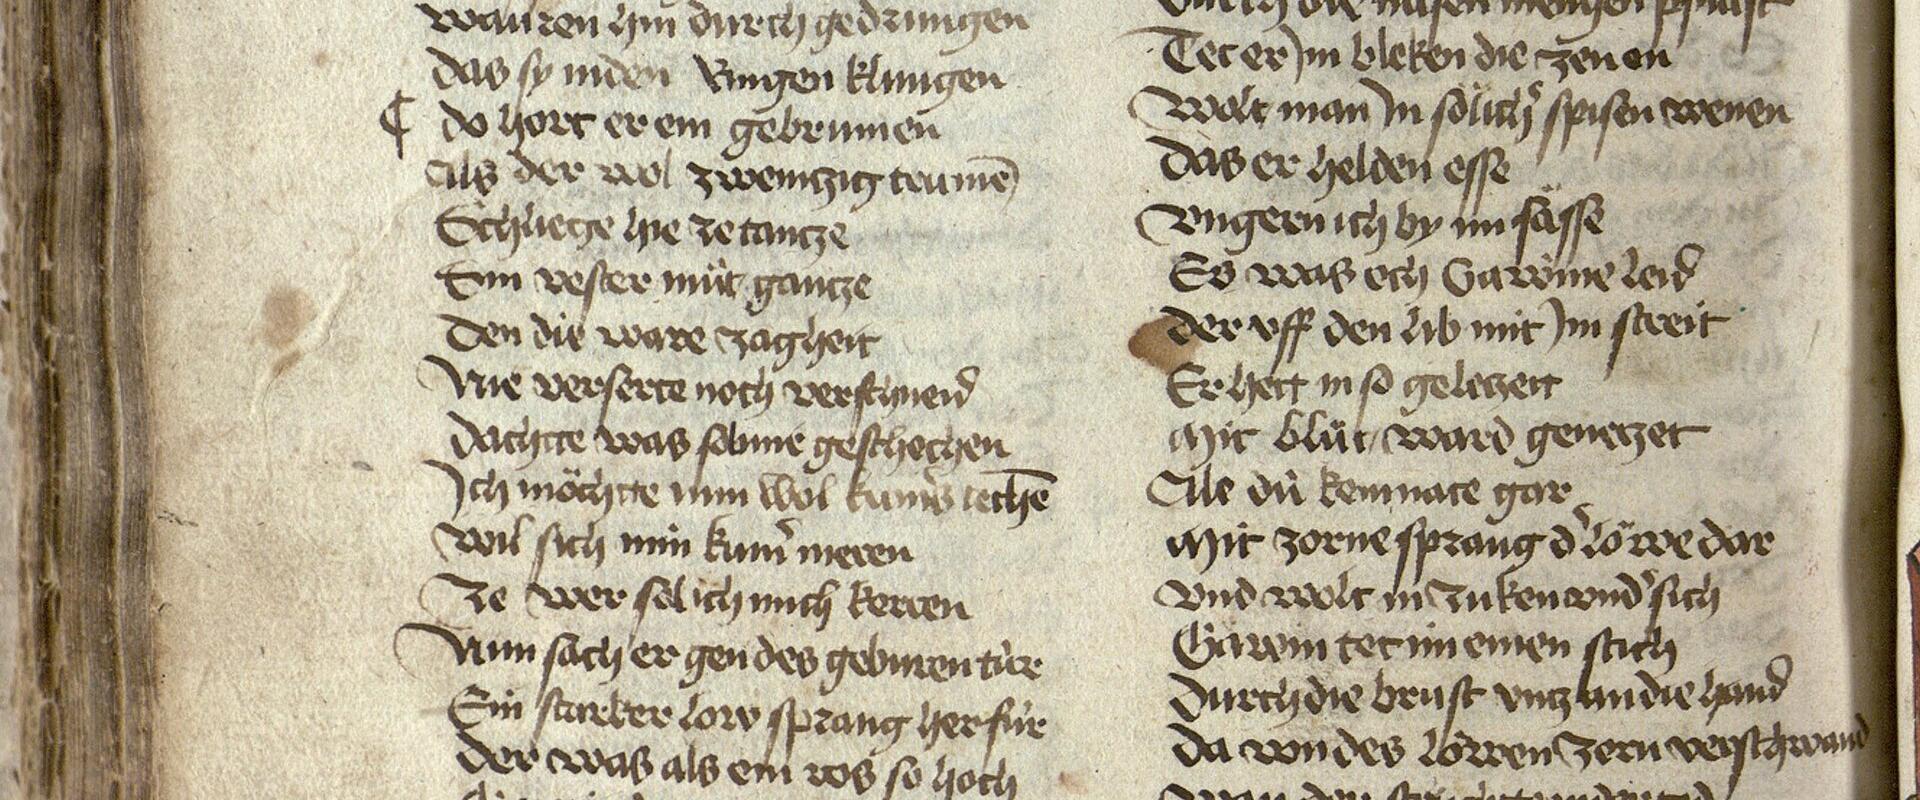 wauren hin durch gedrungen
das sy inden Ringen klungen
¶ do hort er ein gebrumen
Als der wol zweintzig trumē
Schliege hie ze tantze
Sin vester mu᷈t gantze
Den die ware zagheit
Nie verserte noch verschneid
dachte was sol mir geschechen
Ich möchte nun wol kumers iechē
wil sich min kumer meren
Ze wer sol ich mich keren
Nun sach er gen des geburen tür
Ein starker low sprang her für
der was als ein ros so hoch
durch die
Tet er Im bleken die zenen
Wolt man In sölicher spisen wenen
Das er helden esse
vngern ich by im sässe
Es was och Gawine leid
der vff den lib mit Im streit
Er hett in so geletzett
Mit blu᷈t ward genetzet
Alle dü kemnate gar
Mit zorne sprang der löwe dar
vnd wolt in zuken vnder sich
Gawin tet im einen stich
Durch die brust vntz an die hand
da von des löwen zorn verschwand